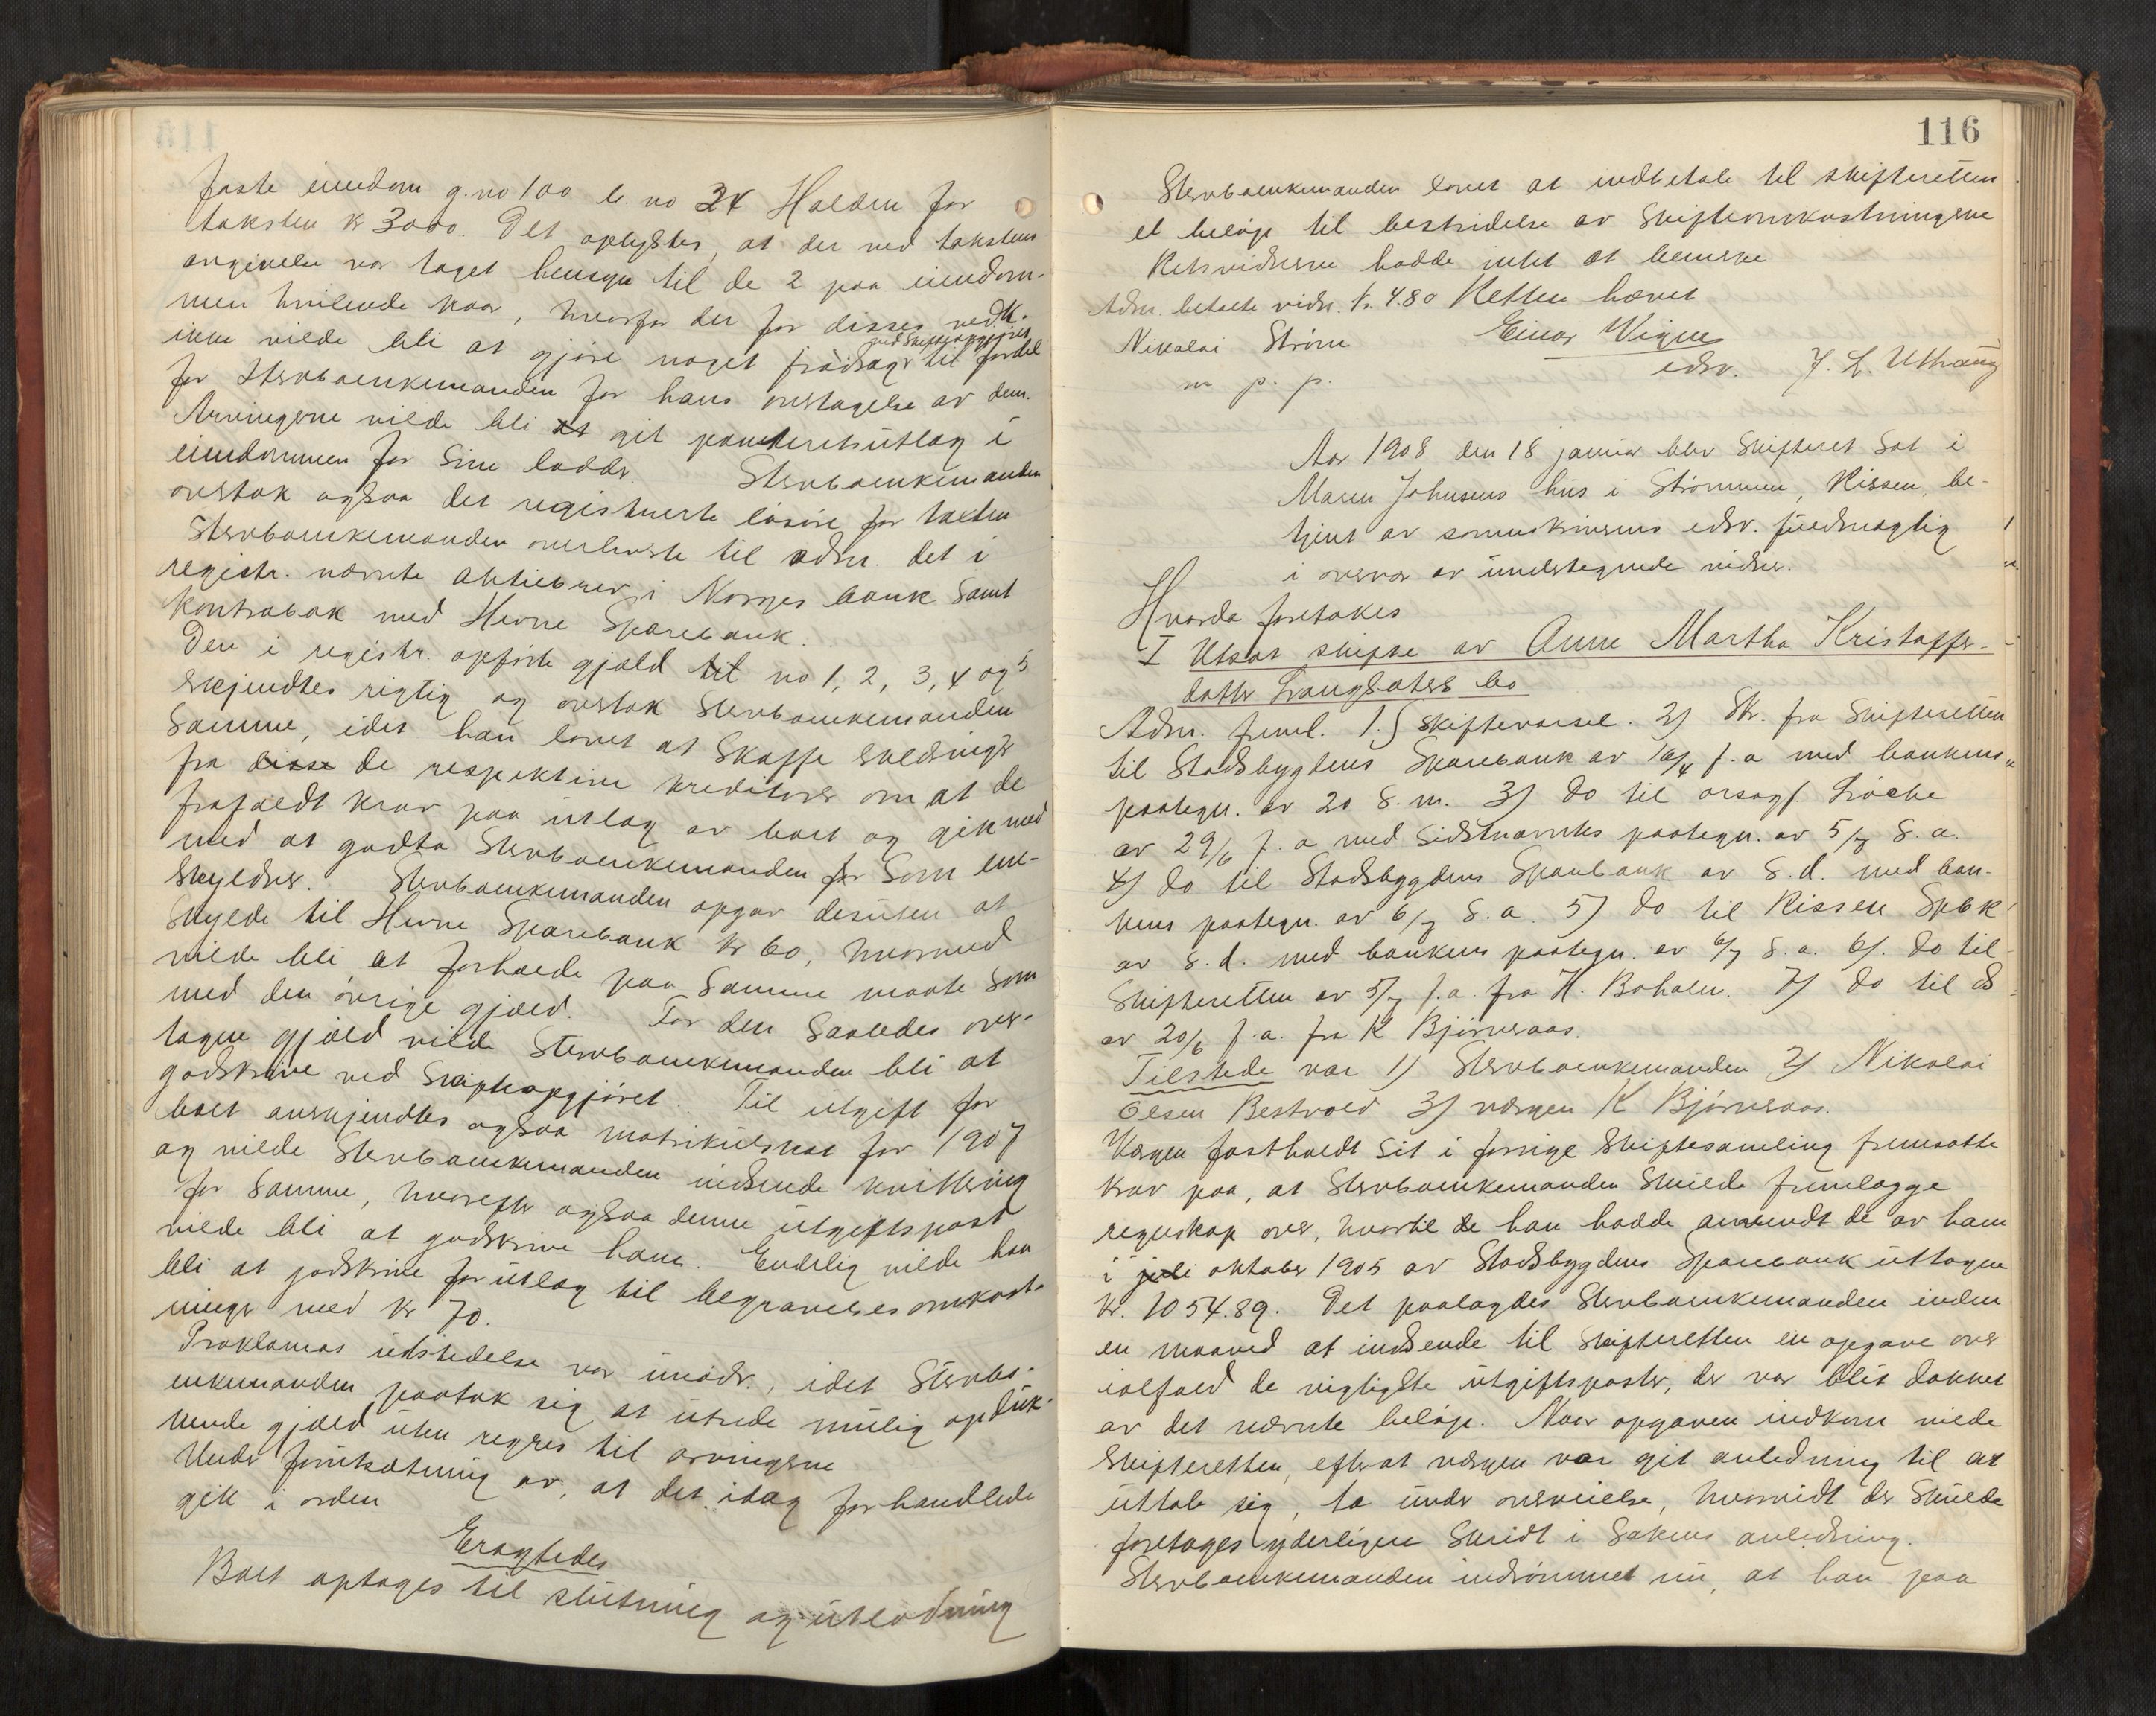 faste eiendom g.no 100 b. no 24 Halden for
taksten kr 3000. Det oplystes, at der ved takstens
angivelse var taget hensyn til de 2 paa eiendom-
men hvilende kaar, hvorfor der for disses vedk.
ikke vilde bli at gjøre noget fradrag ved skifteopgjøret til fordel
for Sterboenkemanden for hans overtagelse av dem.
Arvingerne vilde bli at git panteretsutlæg i
eiendommen for sine lodder. Sterboenkemanden
overtok ogsaa det registrerte løsøre for taxten
Sterboenkemanden overleverte til adm. det i
registr. nævnte aktiebrev i Norges bank samt
kontrabok med Hevne Sparebank.
Den i registr. opførte gjæld til no 1, 2, 3, 4 og 5
erkjendtes rigtig og overtok Sterboenkemanden
samme, idet han lovet at skaffe erklæringer
fra disse de respektive kreditorer om at de
frafaldt krav paa utlæg av boet og gik med
med at godta Sterboenkemanden for som ene-
skyldner. Sterboenkemanden opgav desuten at
skylde til Hevne Sparebank kr 60, hvormed
vilde bli at forholde paa samme maate som
med den øvrige gjæld. For den saaledes over-
tagne gjæld vilde Sterboenkemanden bli at
godskrive ved Skifteopgjøret. Til utgift for
boet anerkjendtes ogsaa matrikulskat for 1907
og vilde Sterboenkemanden indsende kvittering
for samme, hvorefter ogsaa denne utgiftspost
vilde bli at godskrive ham. Endelig vilde han
bli at godskrive for utlæg til begravelsesomkost-
ninger med kr 70.
Proklamas utstedelse var unødv., idet Sterbo-
enkemanden paatok sig at utrede mulig opduk-
kende gjæld uten regres til arvingerne
Under forutsætning av, at det idag forhandlede
gik i orden
Eragtedes
Boet optages til slutning og utlodning
116
Sterboenkemanden lovet at indbetale til skifteretten
et beløp til bestridelse av Skifteomkostningerne
Retsvidnerne hadde intet at bemerke
Adm. betalte vidn. kr. 4.80 Retten hævet
Nikolai Strøm Einar Vigne
m p. p. edsv. J. L. Uthaug
Aar 1908 den 18 januar blev Skifteret sat i
Maren Johnsens hus i Strømmen, Rissen, be-
tjent av sorenskriverens edsv. fuldmægtig
i overvær av undertegnede vidner.
Hvorda foretokes
I Utsat skifte av Anne Martha Kristoffer-
datter Langsæters bo
Adm. freml. 1.) skiftevarsel. 2) Skr. fra Skifteretten
til Stadsbygdens Sparebank av 16/4 f.a med bankens
paategn. av 20 s.m. 3) do til orsagf. Løche
av 29/6 f.a med sidstnævntes paategn. av 5/7 s.a.
4) do til Stadsbygdens Sparebank av s.d. med ban-
kens paategn. av 6/7 s.a. 5) do til Rissen Spbk
av s.d. med bankens paategn. av 6/7 s.a. 6). do til
Skifteretten av 5/7 f.a. fra H. Boholm. 7) do til ds
av 20/6 f.a. fra K Bjørnsaas.
Tilstede var 1) Sterboenkemanden 2) Nikolai
Olsen Bestvold 3) værgen K Bjørnsaas.
Værgen fastholdt sit i forrige Skiftesamling fremsatte
krav paa, at Sterboenkemanden skulde fremlægge
regnskap over, hvortil de han hadde anvendt de av ham
i juli oktober 1905 av Stadsbygdens Sparebank uttagne
kr. 1054.89. Det paalagdes Sterboenkemanden inden
en maaned at indsende til Skifteretten en opgave over
ialfald de vigtigste utgiftsposter, der var blit dækket
av det nævnte beløp. Naar opgaven indkom vilde
Skifteretten, efterat værgen var git anledning til at
uttale sig, ta under overveielse, hvorvidt der skulde
foretages yderligere skridt i sakens anledning.
Sterboenkemanden indrømmet nu, at han paa